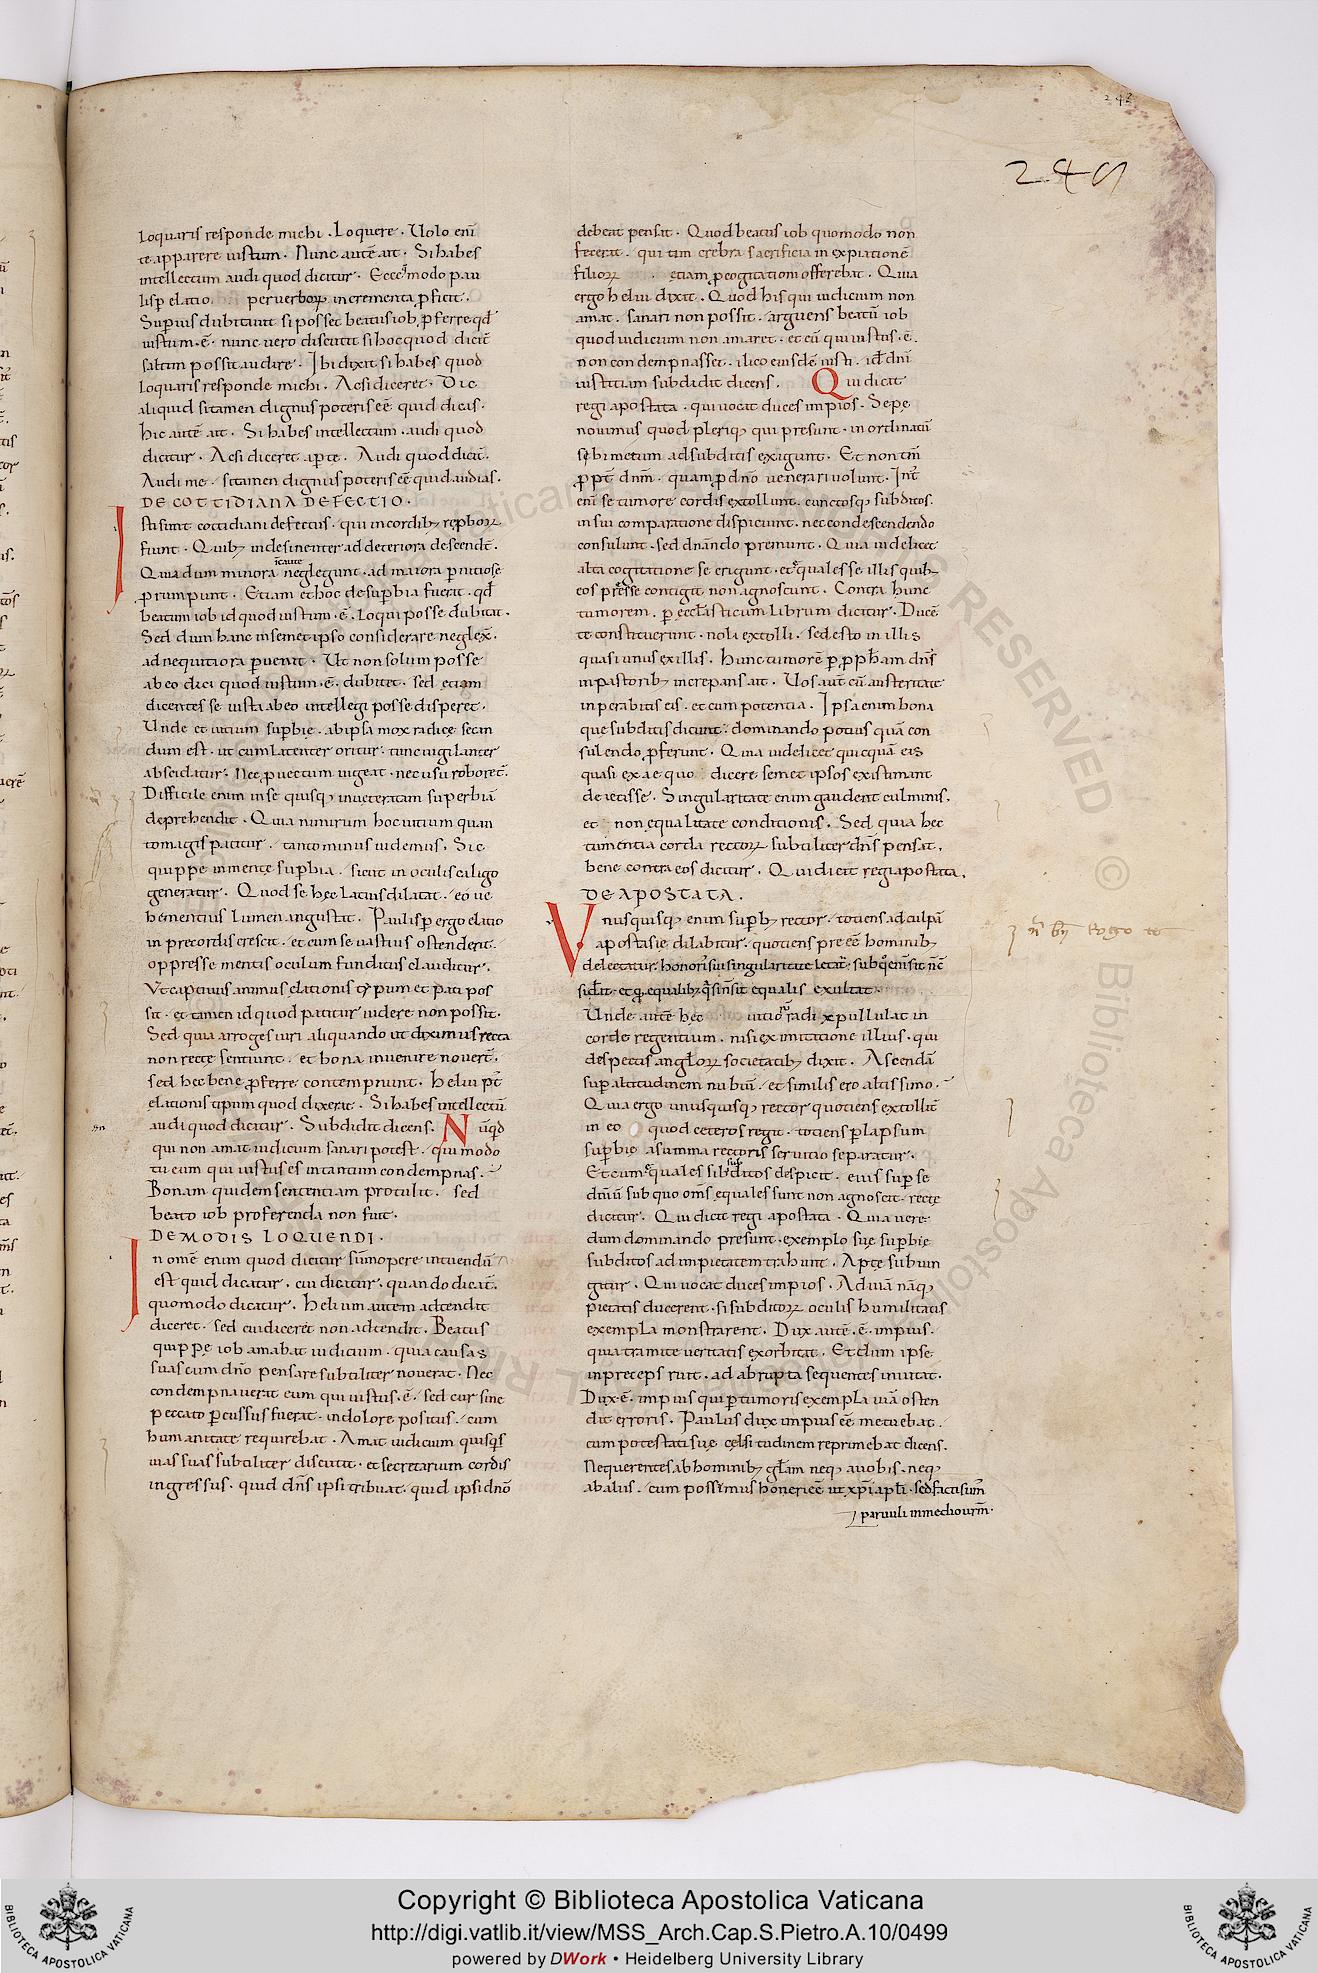 242
249
loquaris responde michi. Loquere. Uolo eni͞
te apparere iustum. Nunc aut͞e ait. Si habes
intellectum audi quod dicitur. Ecce modo pau
lisꝑ elatio peruerborꝝ incrementa ꝓficit.
Suꝑius dubitauit si posset beatus iob ꝓferre qđ
iustum .ē. nunc uero discutit si hoc quod dicit͞
saltim possit audire. Ibi dixit si habes quod
loquaris responde michi. Ac si diceret. Dic
aliquid si tamen dignus poteris eē quid dicis.
hic aut͞e ait. Si habes intellectum. audi quod
dicitur. Ac si diceret aꝑte. Audi quod dicit͞.
Audi me. si tamen dignus poteris eē quid audias.
DE COTTIDIANA DEFECTIO.
Isti sunt cottidiani defectus. qui in cordibꝫ reꝓborꝝ
fiunt. Quibꝫ indesinenter ad deteriora descend͞t.
Quia dum minora icaute neglegunt. ad maiora ꝑnitiose
ꝓrumpunt. Etiam et hoc de suꝑbia fuerat. qđ
beatum iob id quod iustum .ē. loqui posse dubitat.
Sed dum hanc in semet ipso considerare neglex͞.
ad nequitiora ꝑuenit. Ut non solum posse
ab eo dici quod iustum .ē. dubitet. sed etiam
dicentes se iusta ab eo intellegi posse disperet.
Unde et uitium suꝑbię. ab ipsa mox radice secan
dum est. ut cum latenter oritur. tunc uigilanter
abscidatur. Nec ꝓuectum uigeat. nec usu roboret͞.
Difficile enim in se quisqꝫ inueteratam superbiā
deprehendit. Quia nimirum hoc uitium quan
to magis patitur. tanto minus uidemus. Sic
quippe in mente suꝑbia. sicut in oculis caligo
generatur. Quod se hęc latius dilatat. eo ue
hementius lumen angustat. Paulisꝑ ergo elatio
in precordis crescit. et cum se uastius ostenderit.
oppresse mentis oculum funditus clauditur.
Ut captiuus animus elationis typum et pati pos
sit. et tamen id quod patitur uidere non possit.
Sed quia arroges iuri aliquando ut diximus recta
non recte sentiunt. et bona inuenire nouert͞.
sed hec bene ꝓferre contempnunt. heliu p͞t
elationis tipum quod dixerat. Si habes intellectū
audi quod dicitur. Subdidit dicens. Nūqđ
qui non amat iudicium sanari potest. qui modo
tu eum qui iustus es in tantum condempnas.
Bonam quidem sententiam protulit. sed
beato iob proferenda non fuit.
DE MODIS LOQUENDI.
In omē enim quod dicitur sūmopere intuendū
est quid dicatur. cui dicatur. quando dicat͞.
quomodo dicatur. Helium autem adtendit
diceret. sed cui diceret non adtendit. Beatus
quippe iob amabat iudicium. quia causas
suas cum dn͞o pensare subtiliter nouerat. Nec
condempnauerat eum qui iustus .ē. sed cur sine
peccato ꝑcussus fuerat. in dolore positus. cum
humanitate requirebat. Amat iudicium quisqs
uias suas subtiliter discutit. et secretarium cordis
ingressus. quid dn͞s ipsi tribuat. quid ipsi dn͞o
debeat pensat. Quod beatus iob quomodo non
fecerat. qui tam crebra sacrificia in expiationē
filiorꝝ etiam ꝓ cogitationi offerebat. Quia
ergo heliu dixit. Quod his qui iudicium non
amat. sanari non possit. arguens beatū iob
quod iudicium non amaret. et eū qui iustus .ē.
non condempnasset. ilico eiusdē iusti. id͞ dn͞i
iustitiam subdidit dicens. Qui dicit
regi apostata. qui uocat duces impios. Sepe
nouimus quod pleriqꝫ qui presunt. inordinatū
sębi metum ad subditis exigunt. Et non tm͞
ꝓpt͞ dn͞m. quam ꝓ dn͞o uenerari uolunt. Int͞
eni͞ se tumore cordis extollunt. cunctosqꝫ subditos.
in sui comparatione dispiciunt. nec condescendendo
consulunt. sed dn͞ando premunt. Quia uidelicet
alta cogitatione se erigunt. et equales se illis quibꝫ
eos pręesse contigit non agnoscunt. Contra hunc
tumorem. ꝑ eccl͞asticum librum dicitur. Ducē
te constituerunt. noli extolli. sed esto in illis
quasi unus ex illis. Hunc tumorē ꝑ ꝓph͞am dn͞s
in pastoribꝫ increpans ait. Uos aut͞ cū austeritate
inperabitis eis. et cum potentia. Ipsa enim bona
que subditis dicunt. dominando potius quā con
sulendo ꝓferunt. Quia uidelicet quicquā eis
quasi ex aequo dicere semet ipsos existimant
deiecisse. Singularitate enim gaudent culminis.
et non equalitate conditionis. Sed quia hec
tumentia corda rectorꝝ subtiliter dn͞s pensat.
bene contra eos dicitur. Qui dicit regi apostata.
DE APOSTATA.
Unusquisqꝫ enim suꝑbꝫ rector. totiens ad culpā
apostasie dilabitur. quotiens preeē hominibꝫ
delectatur.
Unde aut͞e hęc uitiorū radix pullulat in
corde regentium. nisi ex imitatione illius. qui
despectis angl͞orꝝ societatibꝫ dixit. Ascendā
suꝑ altitudinem nubiū. et similis ero altissimo.
Quia ergo unusquisqꝫ rector quotiens extollit͞
in eo quod ceteros regit. totiens ꝑ lapsum
suꝑbie a summa rectoris seruitio separatur.
Et cum equales sibi subditos despicit. eius suꝑ se
dm͞ū sub quo om͞s equales sunt non agnoscit. recte
dicitur. Qui dicit regi apostata. Quia uere
dum dominando presunt. exemplo suę suꝑbię
subditos ad impietatem trahunt. Apte subiun
gitur. Qui uocat duces impios. Ad uiā nāqꝫ
pietatis ducerent. si subditorꝝ oculis humilitatis
exempla monstrarent. Dux aut͞e .ē. impius.
quia tramite ueritatis exorbitat. Et dum ipse
in preceps ruit. ad abrupta sequentes inuitat.
Dux .ē. impius qui ꝑ tumoris exempla uiā osten
dit erroris. Paulus dux impius eē metuebat.
cum potestati suę celsitudinem reprimebat dicens.
Ne querentes ab hominibꝫ gl͞am neqꝫ a uobis. neqꝫ
ab alus. cum possimus honeri eē ut xp͞i apl͞i. sed facti sum͞
paruuli in medio ur͞m.
Copyright © Biblioteca Apostolica Vaticana
http://digi.vatlib.it/view/MSS_Arch.Cap.S.Pietro.A.10/0499
powered by DWork • Heidelberg University Library
BIBLIOTECA APOSTOLICA VATICANA
BIBLIOTECA APOSTOLICA VATICANA